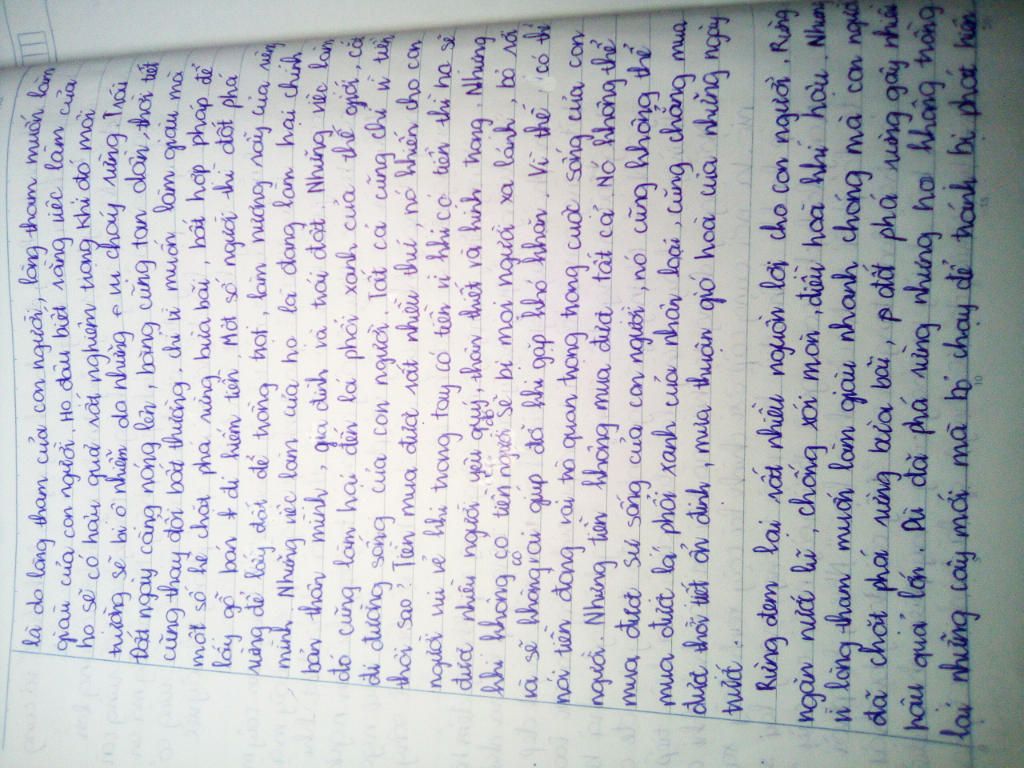 là do lòng tham của con người, lòng tham muốn làm
giàu của con người. Họ đâu biết rằng việc làm của
họ sẽ có hậu quả rất nghiêm trọng khi đó môi
trường sẽ bị ô nhiễm do những vi chay rừng. Trái
Đất ngày càng nóng lên, băng cũng tan dần, thời tiết
cũng thay đổi bất thường. chỉ vì muốn làm giàu mà
một số kẻ chặt phá rừng bừa bãi, bất hợp pháp để
lấy gỗ bán đi kiếm tiền. Một số người thì đốt phá
rừng để lấy đất để trồng trọt, làm nương rẫy của riêng
mình. Những việc làm của họ là đang làm hại chính
bản thân mình, gia đình và trái đất. Những việc làm
đó cũng làm hại đến lá phổi xanh của thế giới, cắt
đi đường sống của con người. Tất cả cũng chỉ vì tiền
thôi sao? Tiền mua được rất nhiều thứ, nó khiến cho con
người vui vẻ khi trong tay có tiền vì khi có tiền thì họ sẽ
được nhiều người yêu quý, thân thiết và kính trọng. Nhưng
khi không có tiền người đó sẽ bị mọi người xa lánh, bỏ rơi
và sẽ không có ai giúp đỡ khi gặp khó khăn. Vì thế có thể
nói tiền đóng vai trò quan trọng trong cuộc sống của con
người. Nhưng tiền không mua được tất cả. Nó không thể
mua được sự sống của con người, nó cũng không thể
mua được lá phổi xanh của nhân loại, cũng chẳng mua
được thời tiết ổn định, mưa thuận gió hoà của những ngày
trước.
Rừng đem lại rất nhiều nguồn lợi cho con người. Rừng
ngăn nước lũ, chống xói mòn, điều hoà khí hậu. Nhưng
vì lòng tham muốn làm giàu nhanh chóng mà con người
đã chặt phá rừng bừa bãi, đốt phá rừng gây nhiều
hậu quả lớn. Dù đã phá rừng nhưng họ không trồng
lại những cây mới mà bỏ chạy để tránh bị phát hiện